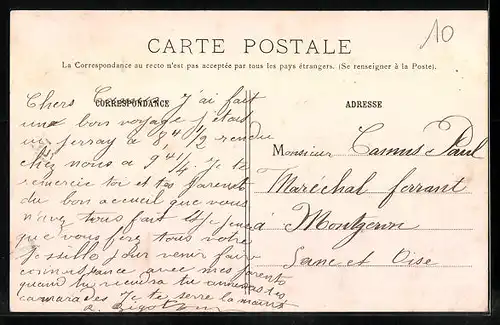 10
CARTE POSTALE
La Correspondance au recto n'est pas acceptée par tous les pays étrangers. (Se renseigner à la Poste).
CORRESPONDANCE
ADRESSE
Chers J'ai fait
une bon voyage j'étais
au perray a 8h 1/2 rendu
chez nous a 9h 1/4. Je te
remercie toi et tes parents
du bon accueil que vous
n'avez tous fait
que vous fere tous votre
pour venir faire
connaissance avec mes parents
quand tu viendra tu amenras tes
camarades Je te serre la main
Monsieur Camus Paul
Maréchal ferrant
à Montgeron
Seine et Oise